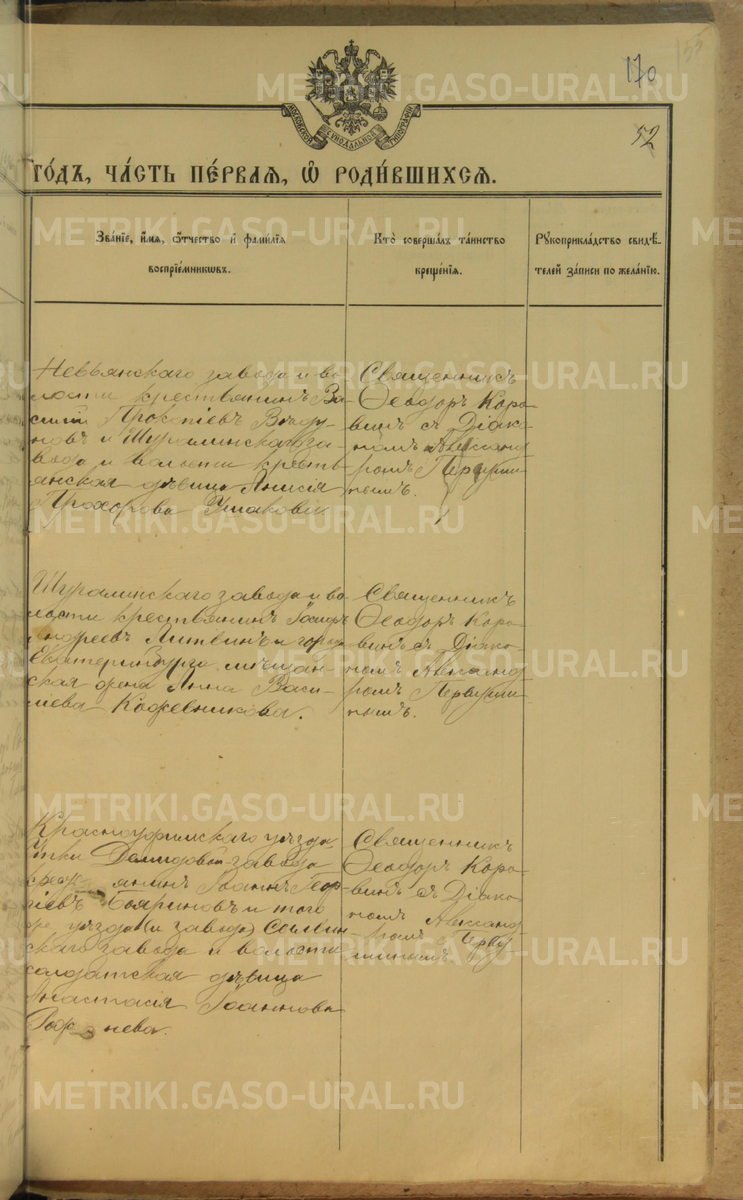 170
52
МОСКОВСКОЙ СѴНОДАЛЬНОЙ ТИПОГРАФІИ
ГОДЪ, ЧАСТЬ ПЕРВАЯ, Ѡ РОДИВШИХСЯ.
Званіе, имя, отчество и фамилія
воспріемниковъ.
Кто совершалъ таинство
крещенія.
Рукоприкладство свидѣ-
телей записи по желанію.
Невьянскаго завода и во-
лости крестьянинъ Ва-
силій Прокопіевъ
новъ и Шуралинскаго за-
вода и волости кресть-
янская дѣвица Анисія
Прохорова Ушакова
Священникъ
Ѳеодоръ Коро-
винъ съ Діако-
номъ Александ
ромъ Первуши
нымъ.
Шуралинскаго завода и во-
лости крестьянинъ
Андреевъ Литвинъ и города
Екатеринбурга мѣщан-
ская жена Анна Васи-
лева Кожевникова.
Священникъ
Ѳеодоръ Коро-
винъ съ Діако-
номъ Александ
ромъ Первуши
нымъ.
Красноуфимскаго уѣзда
Утки Демидовой завода
крест янинъ Іоаннъ Геор-
гіевъ Бояриновъ и того
же уѣзда (и завода) Сылвин-
скаго завода и волости
солдатская дѣвица
Анастасія Іоаннова
Священникъ
Ѳеодоръ Коро-
винъ съ Діако-
номъ Александ
ромъ Перву
шинымъ
METRIKI.GASO-URAL.RU